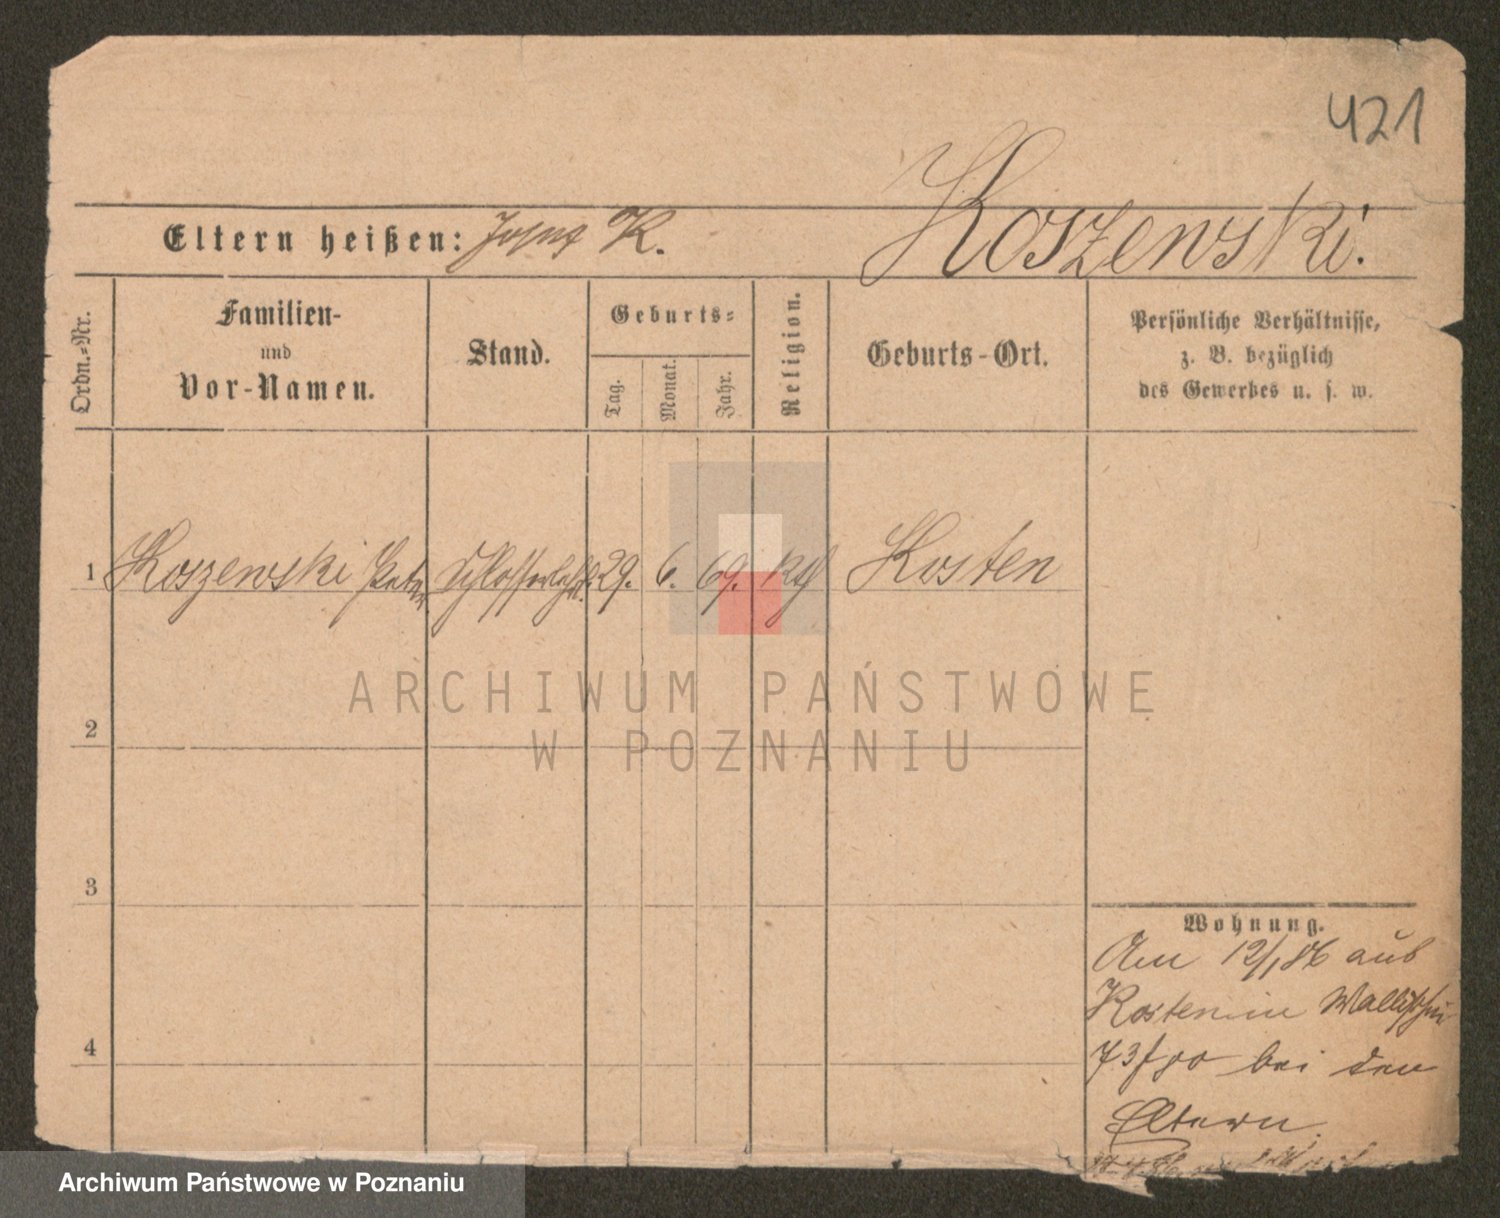 421
Eltern heißen: Josef K.
Koszewski.
Ordn.-Nr.
Familien-
und
Vor-Namen.
Stand.
Geburts-
Tag.
Monat.
Jahr.
Religion.
Geburts-Ort.
Persönliche Verhältnisse,
z. B. bezüglich
des Gewerbes u. s. w.
1 Koszewski Peter Schlosserlehrl. 29. 6. 69. kth Kosten
2
3
4
Wohnung.
Am 12/1 86 aus
Kosten in Wallischei
73/80 bei den
Eltern.
ARCHIWUM PAŃSTWOWE
W POZNANIU
Archiwum Państwowe w Poznaniu